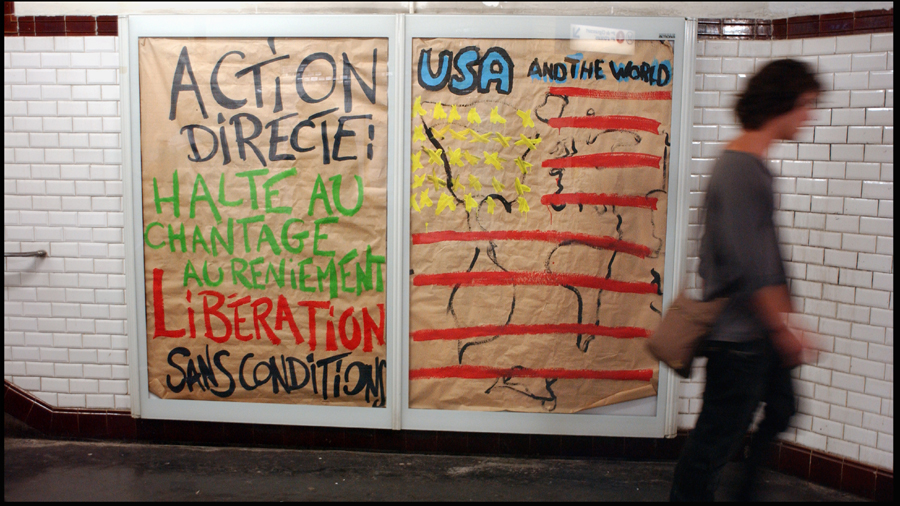 ACTION
DIRECTE:
HALTE AU
CHANTAGE
AU RENIEMENT
LIBÉRATION
SANS CONDITIONS
USA AND THE WORLD